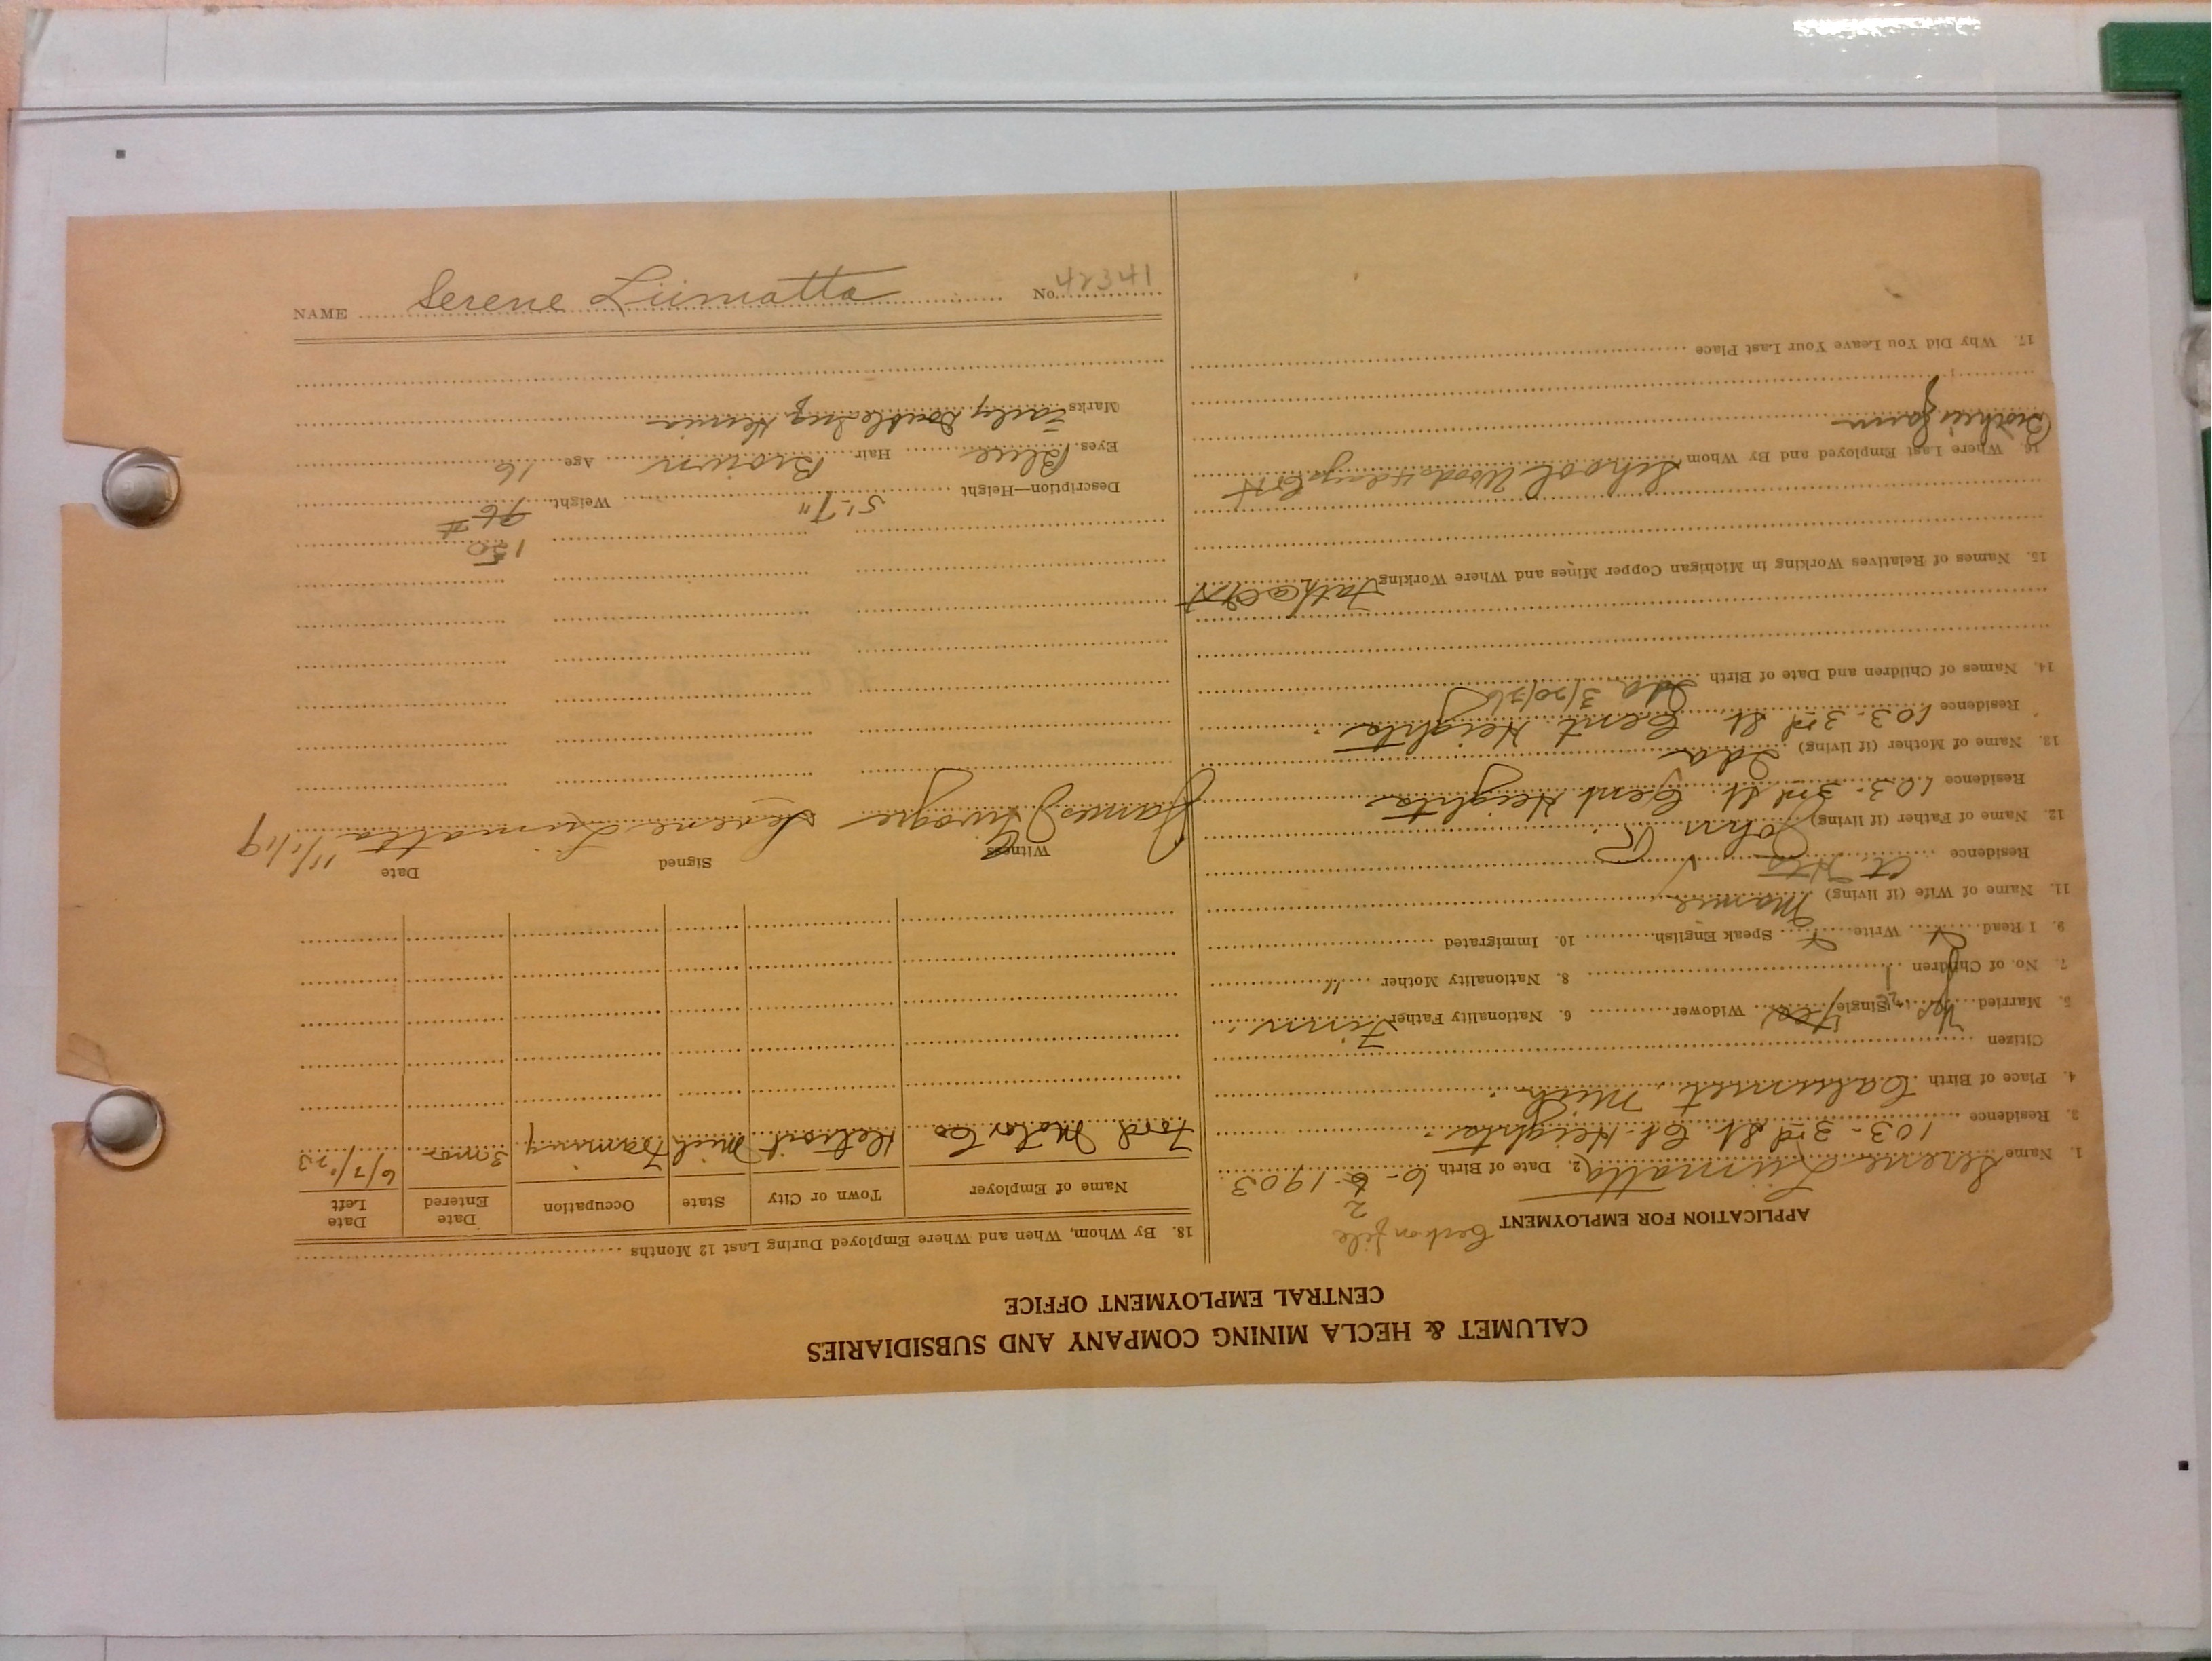 CALUMET & HECLA MINING COMPANY AND SUBSIDIARIES
CENTRAL EMPLOYMENT OFFICE
APPLICATION FOR EMPLOYMENT
1. Name Serene Liimatta 2. Date of Birth 6-6-1903
2
3. Residence 103-3rd St. Ct. Heights.
4. Place of Birth Calumet, Mich.
Citizen
5. Married Yes Single Yes Widower 6. Nationality Father Finn.
7. No. of Children 1 8. Nationality Mother "
9. I Read Write Speak English 10. Immigrated
11. Name of Wife (if living) Mamie
Residence Ct. Hts
12. Name of Father (if living) John
Residence 103-3rd St. Cent. Heights
13. Name of Mother (if living) Ida
Residence 103-3rd St. Cent. Heights.
14. Names of Children and Date of Birth Ida 3/20/26
15. Names of Relatives Working in Michigan Copper Mines and Where Working Fath @ C+H
16. Where Last Employed and By Whom School
17. Why Did You Leave Your Last Place
18. By Whom, When and Where Employed During Last 12 Months
Name of Employer Town or City State Occupation Date Entered Date Left
Ford Motor Co Detroit Mich 3 mos 6/7/'23
Witness Signed Date
James Serene Liimatta 11/1/19
150
Description—Height 5'-7" Weight 96 #
Eyes Blue Hair Brown Age 16
Marks Double Ing Hernia
NAME Serene Liimatta No. 42341